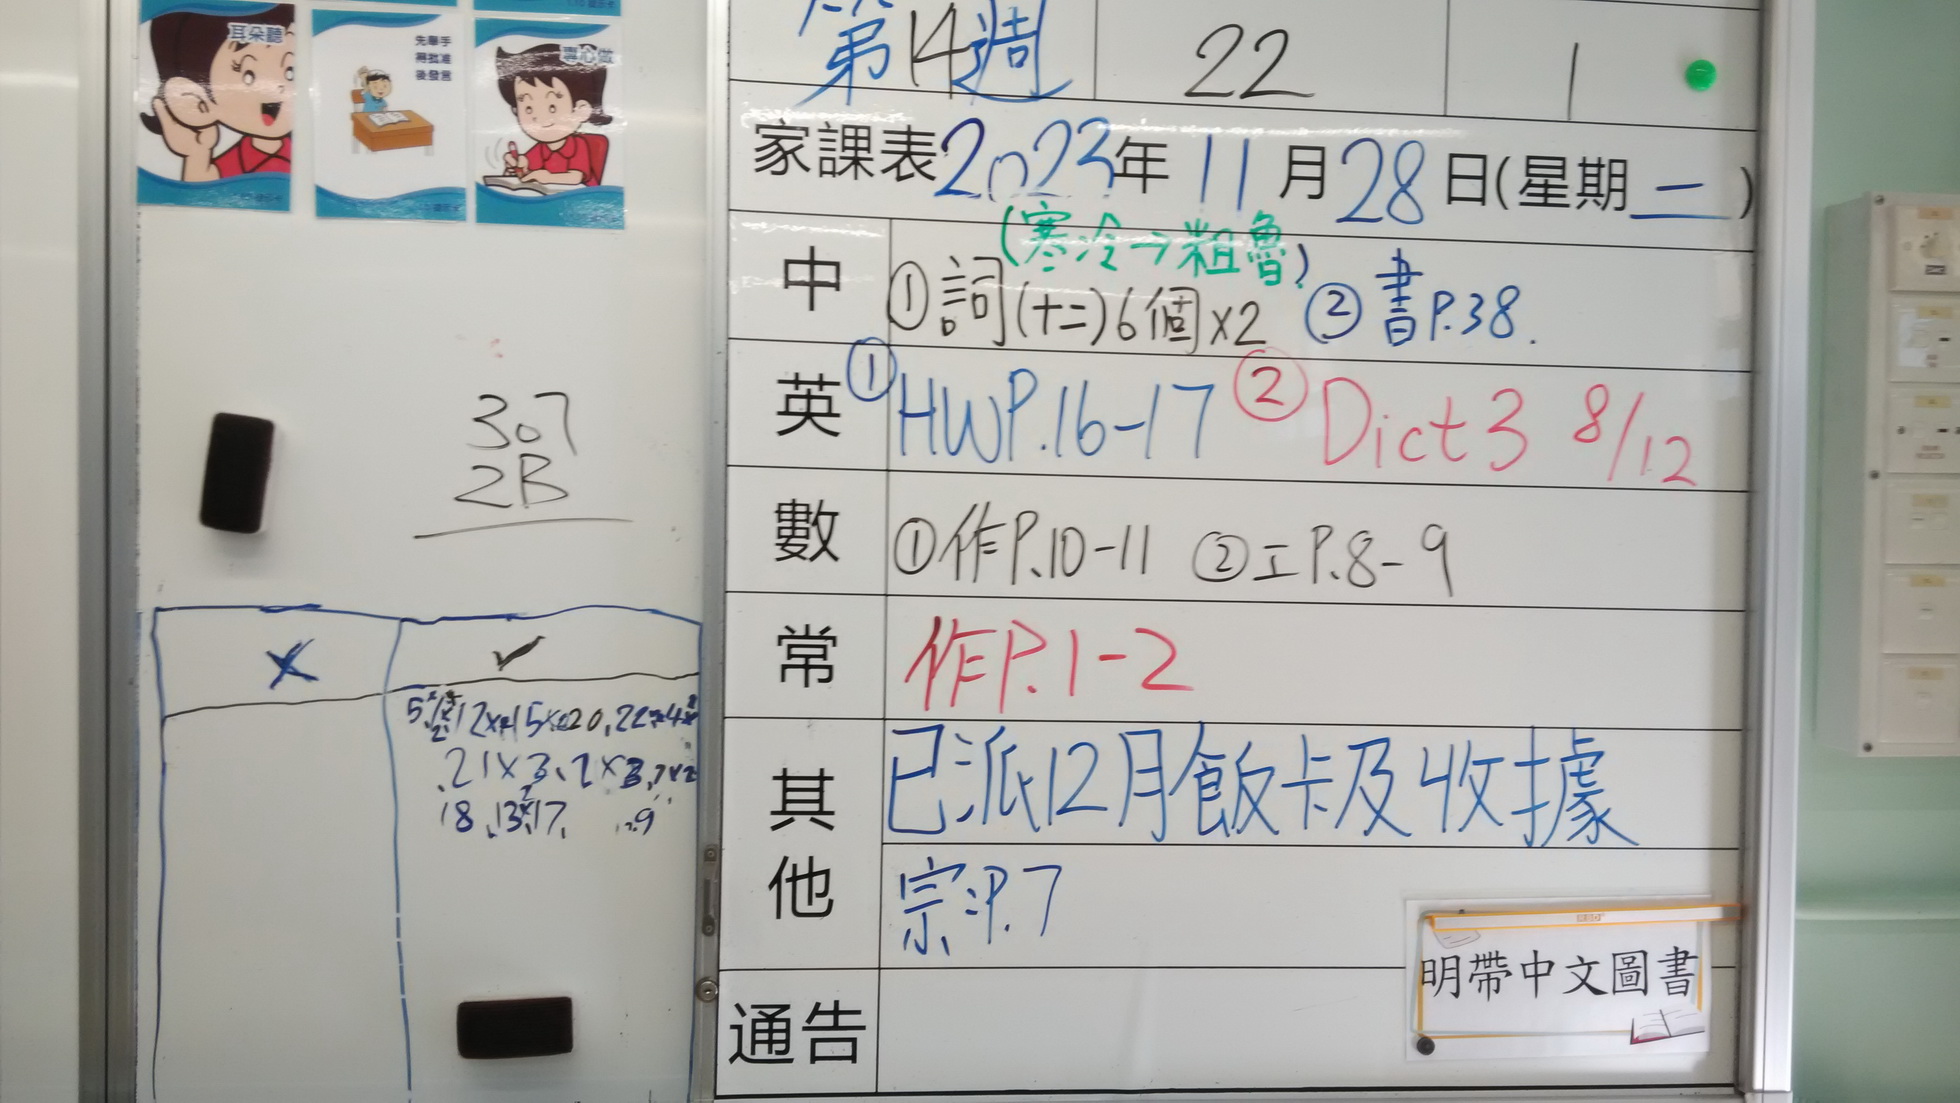 耳朵聽
先舉手
得批准
後發言
專心做
307
2B
✓
21x3
18
13
17
9
第14週 22 1
家課表2023年11月28日(星期二)
(寒冷→粗魯)
中 ①詞(十二)6個x2 ②書P.38.
英 ①HWP.16-17 ②Dict 3 8/12
數 ①作P.10-11 ②工P.8-9
常 作P.1-2
其他 已派12月飯卡及收據
宗:P.7
通告
明帶中文圖書